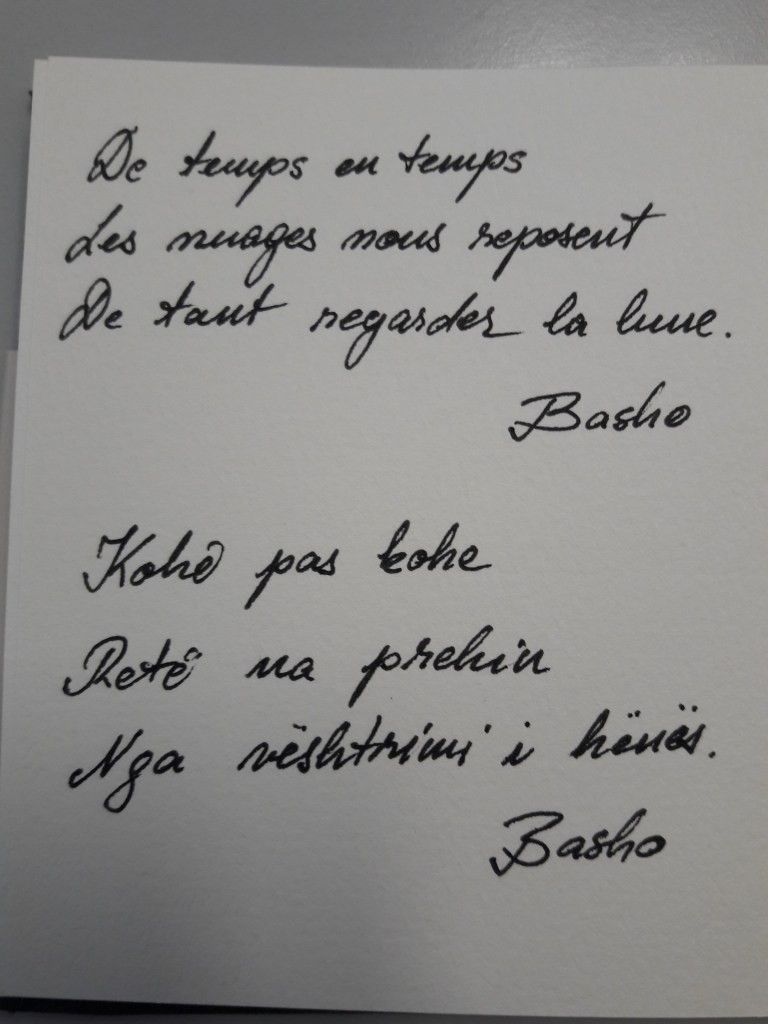 De temps en temps
Les nuages nous reposent
De tant regarder la lune.
Basho
Kohë pas kohe
Retë na prehin
Nga vështrimi i hënës.
Basho